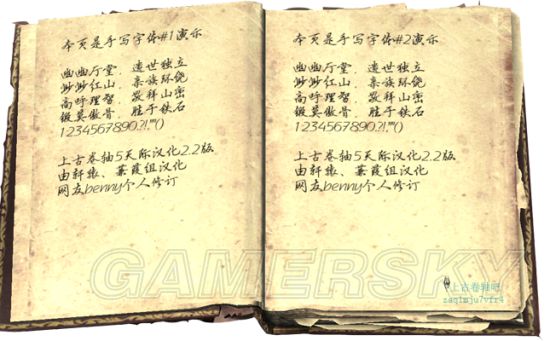 本页是手写字体#1演示
幽幽厅堂，遗世独立
渺渺红山，亲族环绕
高呼理智，敬拜山密
锻莫傲骨，胜于铁石
1234567890.?!,"()
上古卷轴5天际汉化2.2版
由轩辕、蒹葭组汉化
网友benny个人修订
本页是手写字体#2演示
幽幽厅堂，遗世独立
渺渺红山，亲族环绕
高呼理智，敬拜山密
锻莫傲骨，胜于铁石
1234567890.?!,"()
上古卷轴5天际汉化2.2版
由轩辕、蒹葭组汉化
网友benny个人修订
GAMERSKY
上古卷轴吧
zaqimju7vfr4